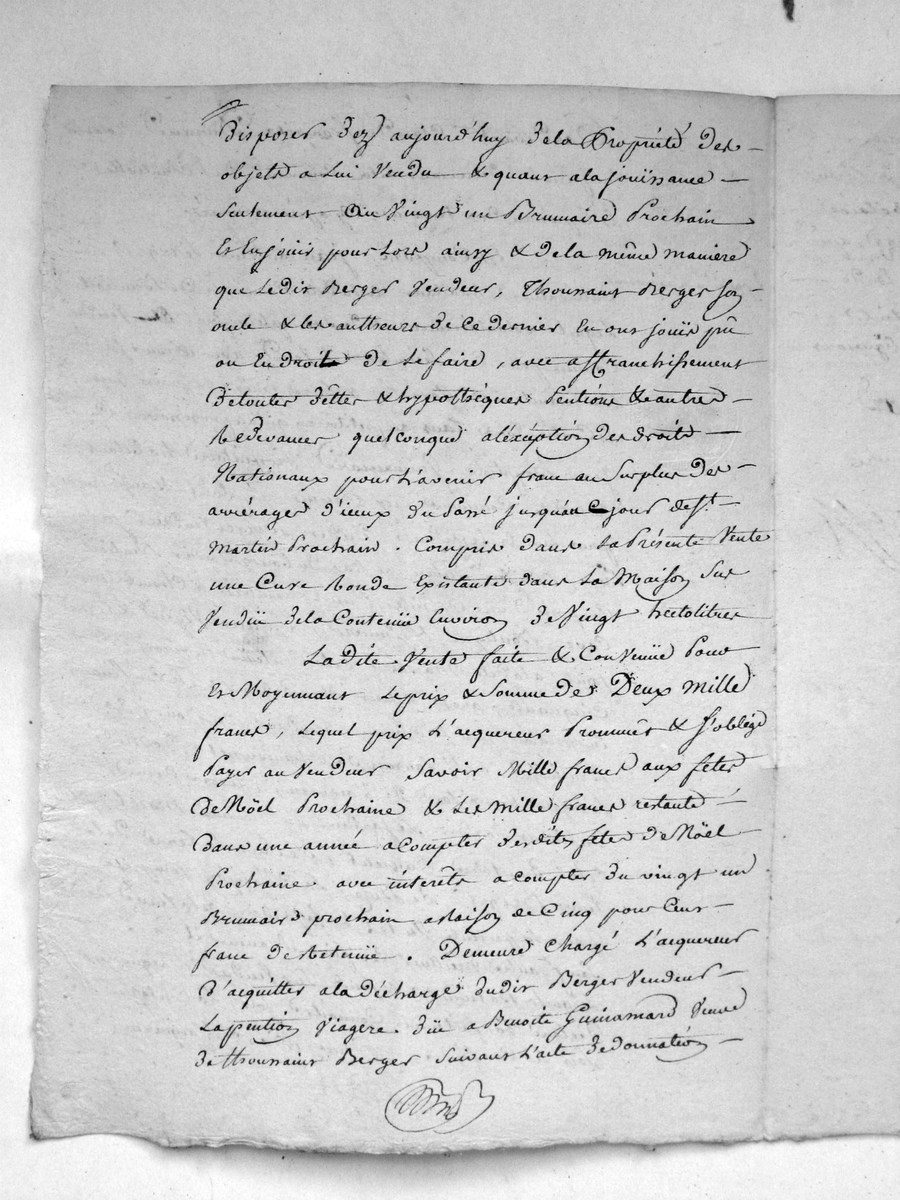 disposer dez aujourd'huy dela Propriété des
objets a Lui Vendu & quant ala jouïssance
seulement au Vingt un Brumaire Prochain
Et En jouir pour Lors ainsy & dela même maniere
que Ledit Berger Vendeur, Thoussaint Berger son
oncle & les autheurs de ce dernier En ont jouïs pû
ou En droit de Le faire, avec affranchissement
de toutes dêttes & hypothèques Pentions & autres
Redevances quelconque aléxéption des droits
Nationaux pour L'avenir franc au Surplus des
arrérages d'iceux du Passé jusqu'au jour de St
Martin Prochain. Compris dans La Présente Vente
une Cuve Ronde Existante dans La Maison Sus
Vendüe dela Contenüe Environ de Vingt hectolitres
Ladite Vente faite & Convenüe Pour
Et Moyennant Le prix & Somme de Deux Mille
francs, Lequel prix L'acquereur Prommêt & S'oblige
Payer au Vendeur Savoir Mille francs aux fetes
de Nöel Prochaine & Les Mille francs restants
dans une année a compter desdites fetes de Nöel
Prochaine avec intérêts a compter du vingt un
Brumaire prochain a Raison de Cinq pour Cent
franc de Retenüe. Demeure Chargé L'acquereur
d'acquitter ala décharge dudit Berger Vendeur
La pention Viagere düe a Benoite Guinamard Veuve
de Thoussaint Berger Suivant L'acte de donnation